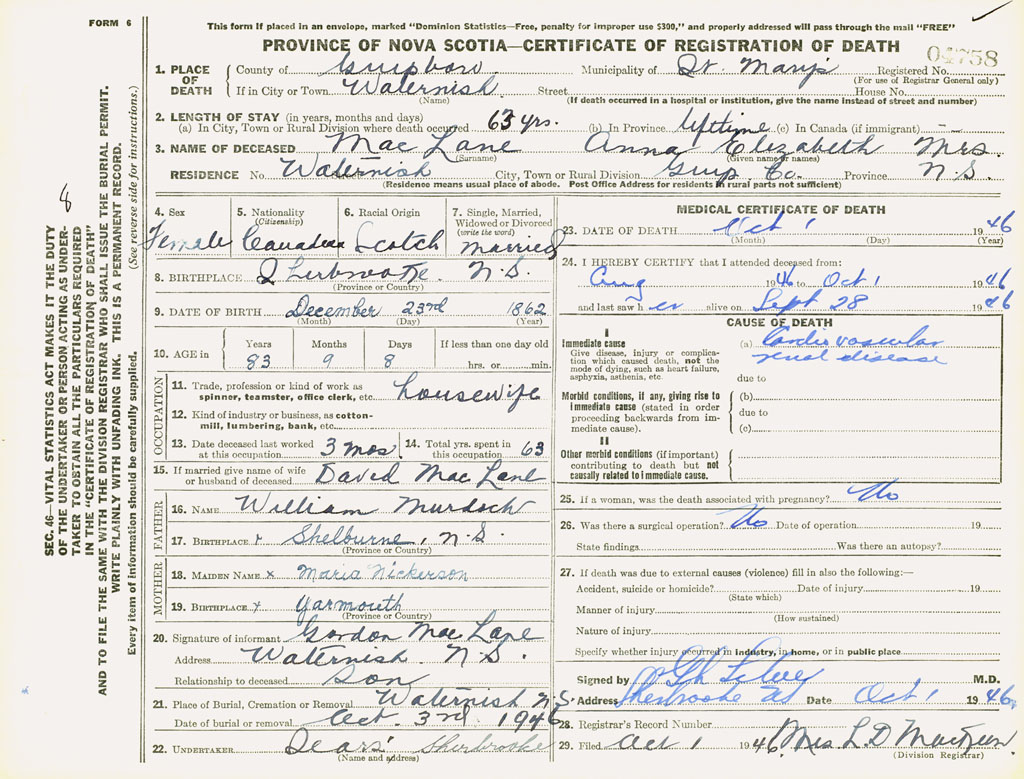 FORM 6
This form if placed in an envelope, marked "Dominion Statistics—Free, penalty for improper use $300," and properly addressed will pass through the mail "FREE"
PROVINCE OF NOVA SCOTIA—CERTIFICATE OF REGISTRATION OF DEATH
04758
1. PLACE OF DEATH
County of Guysboro Municipality of St. Mary's Registered No.
(For use of Registrar General only)
If in City or Town Waternish Street House No.
(Name) (If death occurred in a hospital or institution, give the name instead of street and number)
2. LENGTH OF STAY (in years, months and days)
(a) In City, Town or Rural Division where death occurred 63 yrs. (b) In Province lifetime (c) In Canada (if immigrant) —
3. NAME OF DECEASED Mac Lane Anna Elizabeth Mrs.
(Surname) (Given name or names)
RESIDENCE No. Waternish City, Town or Rural Division Guys Co. Province N.S.
(Residence means usual place of abode. Post Office Address for residents in rural parts not sufficient)
4. Sex 5. Nationality (Citizenship) 6. Racial Origin 7. Single, Married, Widowed or Divorced (write the word)
Female Canadian Scotch married
8. BIRTHPLACE N.S.
(Province or Country)
9. DATE OF BIRTH December 23rd 1862
(Month) (Day) (Year)
10. AGE in Years Months Days If less than one day old
83 9 8 hrs. or min.
OCCUPATION
11. Trade, profession or kind of work as spinner, teamster, office clerk, etc. housewife
12. Kind of industry or business, as cotton-mill, lumbering, bank, etc.
13. Date deceased last worked at this occupation 3 mos 14. Total yrs. spent in this occupation 63
15. If married give name of wife or husband of deceased David Mac Lane
FATHER
16. NAME William Murdoch
17. BIRTHPLACE Shelburne, N.S.
(Province or Country)
MOTHER
18. MAIDEN NAME x Maria Nickerson
19. BIRTHPLACE x Yarmouth
(Province or Country)
20. Signature of informant Gordon Mac Lane
Address Waternish. N.S.
Relationship to deceased Son
21. Place of Burial, Cremation or Removal Waternish N.S.
Date of burial or removal Oct. 3rd 1946
22. UNDERTAKER Sears' Sherbrooke
(Name and address)
MEDICAL CERTIFICATE OF DEATH
23. DATE OF DEATH Oct 1 1946
(Month) (Day) (Year)
24. I HEREBY CERTIFY that I attended deceased from:
Aug 1946 to Oct 1 1946
and last saw her alive on Sept 28 1946
CAUSE OF DEATH
I
Immediate cause
Give disease, injury or complication which caused death, not the mode of dying, such as heart failure, asphyxia, asthenia, etc.
(a) Cardio vascular
renal disease
due to
Morbid conditions, if any, giving rise to immediate cause (stated in order proceeding backwards from immediate cause).
(b)
due to
(c)
II
Other morbid conditions (if important) contributing to death but not causally related to immediate cause.
25. If a woman, was the death associated with pregnancy? No
26. Was there a surgical operation? No Date of operation 19
State findings Was there an autopsy?
27. If death was due to external causes (violence) fill in also the following:—
Accident, suicide or homicide? Date of injury 19
(State which)
Manner of injury
(How sustained)
Nature of injury
Specify whether injury occurred in industry, in home, or in public place
Signed by M.D.
Address Sherbrooke NS Date Oct 1 1946
28. Registrar's Record Number
29. Filed Oct 1 1946 Mrs L D
(Division Registrar)
SEC. 46—VITAL STATISTICS ACT MAKES IT THE DUTY
OF THE UNDERTAKER OR PERSON ACTING AS UNDER-
TAKER TO OBTAIN ALL THE PARTICULARS REQUIRED
IN THE "CERTIFICATE OF REGISTRATION OF DEATH"
AND TO FILE THE SAME WITH THE DIVISION REGISTRAR WHO SHALL ISSUE THE BURIAL PERMIT.
WRITE PLAINLY WITH UNFADING INK. THIS IS A PERMANENT RECORD.
Every item of information should be carefully supplied. (See reverse side for instructions.)
8